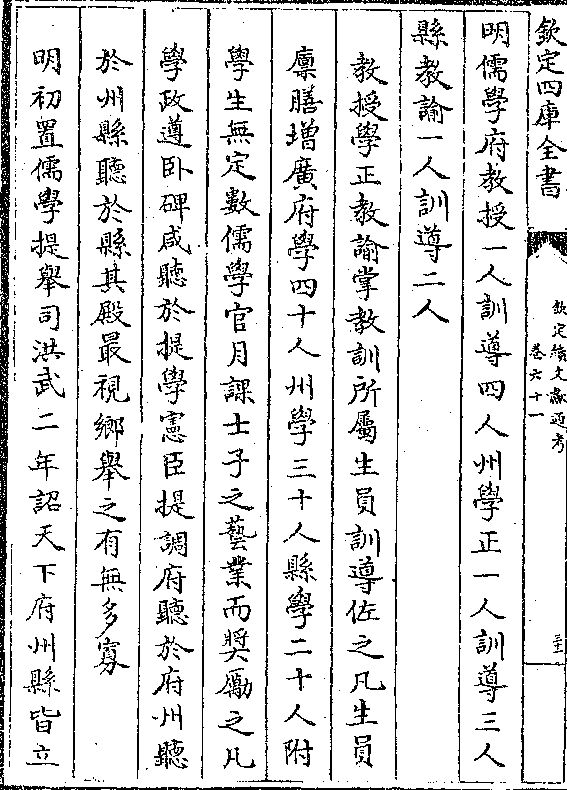 欽定四庫全書
欽定續文獻通考
卷六十一
明儒學府教授一人訓導四人州學正一人訓導三人
縣教諭一人訓導二人
教授學正教諭掌教訓所屬生員訓導佐之凡生員
廪膳增廣府學四十人州學三十人縣學二十人附
學生無定數儒學官月課士子之藝業而奬勵之凡
學政遵卧碑咸聽於提學憲臣提調府聽於府州聽
於州縣聽於縣其殿最視鄉舉之有無多寡
明初置儒學提舉司洪武二年詔天下府州縣皆立